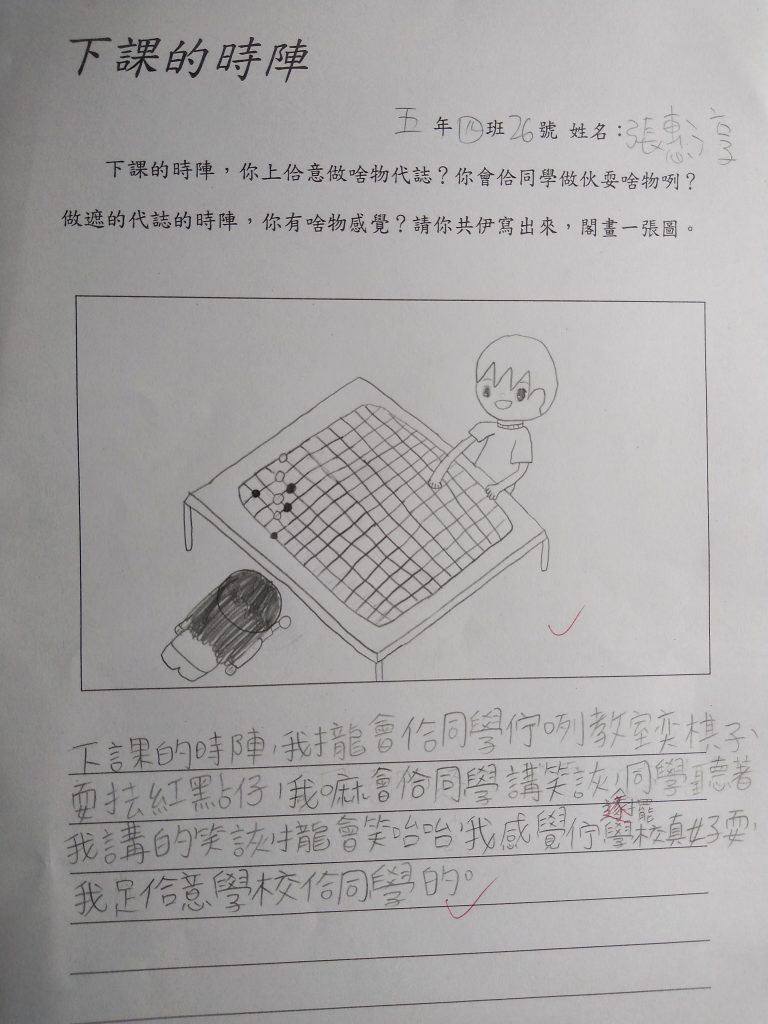 下課的時陣
五年四班26號 姓名：張惠渟
下課的時陣，你上佮意做啥物代誌？你會佮同學做伙耍啥物咧？
做遮的代誌的時陣，你有啥物感覺？請你共伊寫出來，閣畫一張圖。
下課的時陣，我攏會佮同學佇咧教室奕棋子、
耍抾紅點仔，我嘛會佮同學講笑詼，同學聽著
我講的笑詼，攏會笑咍咍，我感覺佇學校真好耍，
逐擺
我足佮意學校佮同學的。